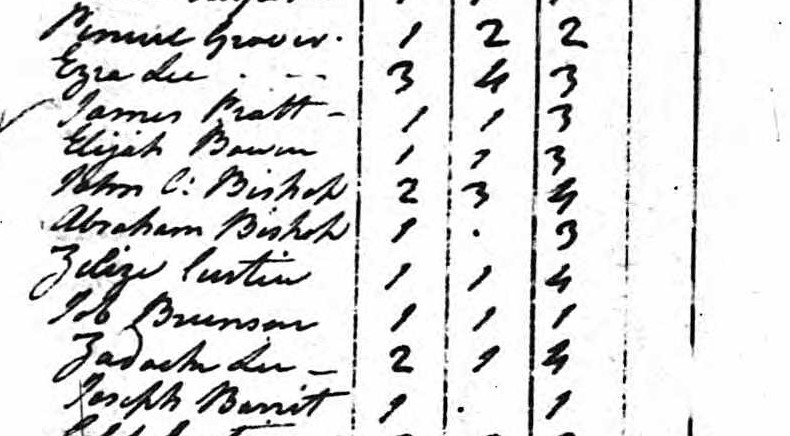 Grover. 1 2 2
Ezra Lee . - - 3 4 3
James Pratt - 1 1 3
Elijah Bowen 1 1 3
John C: Bishop 2 3 4
Abraham Bishop 1 . 3
Curtice 1 1 4
Job Brunson 1 1 1
Zadock Lee - 2 1 4
Joseph Barrit 1 . 1